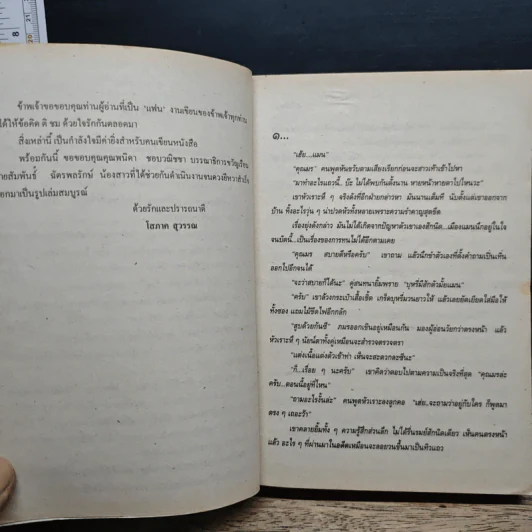 ข้าพเจ้าขอขอบคุณท่านผู้อ่านที่เป็น "แฟน" งานเขียนของข้าพเจ้าทุกท่าน
ได้ให้ข้อคิด ติ ชม ด้วยใจรักกันตลอดมา
สิ่งเหล่านี้ เป็นกำลังใจมีค่ายิ่งสำหรับคนเขียนหนังสือ
พร้อมกันนี้ ขอขอบคุณคุณพนิดา ชอบวณิชชา บรรณาธิการขวัญเรือน
ายสัมพันธ์ ฉัตรพลรักษ์ น้องสาวที่ได้ช่วยกันดำเนินงานจน
ออกมาเป็นรูปเล่มสมบูรณ์
ด้วยรักและปรารถนาดี
โสภาค สุวรรณ
๑...
"เฮ้ย...แมน"
"คุณมร" คนพูดหันขวับตามเสียงเรียกก่อนจะสาวเท้าเข้าไปหา
"มาทำอะไรแถวนี้.. บ๊ะ ไม่ได้พบกันตั้งนาน หายหน้าหายตาไปไหนวะ"
เขาหัวเราะหึ ๆ จริงดังที่อีกฝ่ายกล่าวหา มันนานเต็มที นับตั้งแต่เขาออกจาก
บ้าน ทิ้งอะไรวุ่น ๆ น่าปวดหัวทั้งหลายเพราะความรำคาญสุดขีด
เรื่องยุ่งดังกล่าว มันไม่ได้เกิดจากปัญหาตัวเขาเองสักนิด...เมื่อแมนนึกอยู่ในใจ
จนบัดนี้...เป็นเรื่องของการทนไม่ได้อีกตามเคย
"คุณมร สบายดีหรือครับ" เขาถาม แล้วนึกขำตัวเองที่ตั้งคำถามเป็นเห็น
ออกไปอีกจนได้
"จะว่าสบายก็ได้นะ" คู่สนทนายิ้มพราย "บุหรี่มีสักตัวมั้ยแมน"
"ครับ" เขาล้วงกระเป๋าเสื้อเชิ้ต เกร็ดบุหรี่มวนยาวให้ แล้วเลยยัดเยียดใส่มือให้
ทั้งซอง แถมไม้ขีดไฟอีกกลัก
"สูบด้วยกันซี" ภมรออกเขินอยู่เหมือนกัน มองผู้อ่อนวัยกว่าตรงหน้า แล้ว
หัวเราะหึ ๆ นัยน์ตาทั้งคู่เหมือนจะสำรวจตรวจตรา
"แต่งเนื้อแต่งตัวเข้าท่า เห็นจะสะดวกละซีนะ"
"ก็...เรื่อย ๆ นะครับ" เขาคิดว่าตอบไปตามความเป็นจริงที่สุด "คุณมรล่ะ
ครับ...ตอนนี้อยู่ที่ไหน"
"ถามอะไรงั้นล่ะ" คนพูดหัวเราะลงลูกคอ "เฮ่ย..จะถามว่าอยู่กับใคร ก็พูดมา
ตรง ๆ เถอะว้า"
เขาคลายยิ้มทั้ง ๆ ความรู้สึกส่วนลึก ไม่ได้รื่นรมย์สักนิดเดียว เห็นคนตรงหน้า
แล้ว อะไร ๆ ที่ผ่านมาในอดีตเหมือนจะลอยวนขึ้นมาเป็นทิวแถว